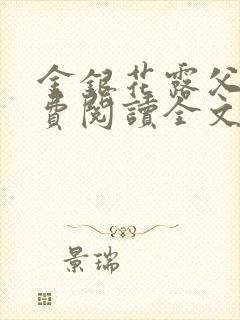 金銀花露父
費閱讀全文
景瑞